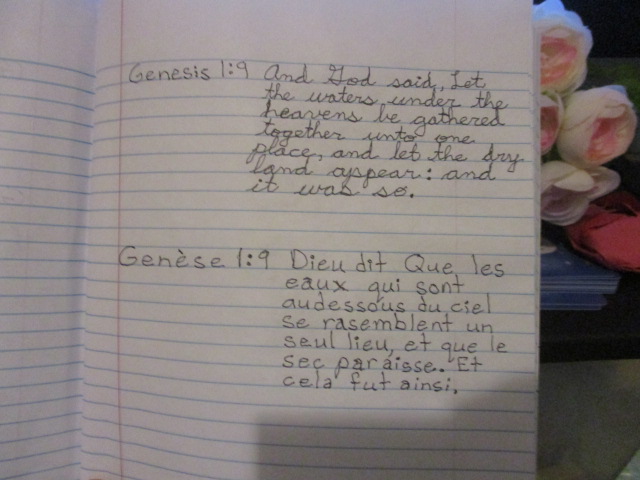 Genesis 1:9 And God said, Let
the waters under the
heavens be gathered
together unto one
place, and let the dry
land appear: and
it was so.
Genèse 1:9 Dieu dit Que les
eaux qui sont
audessous du ciel
se rasemblent un
seul lieu, et que le
sec paraisse. Et
cela fut ainsi.